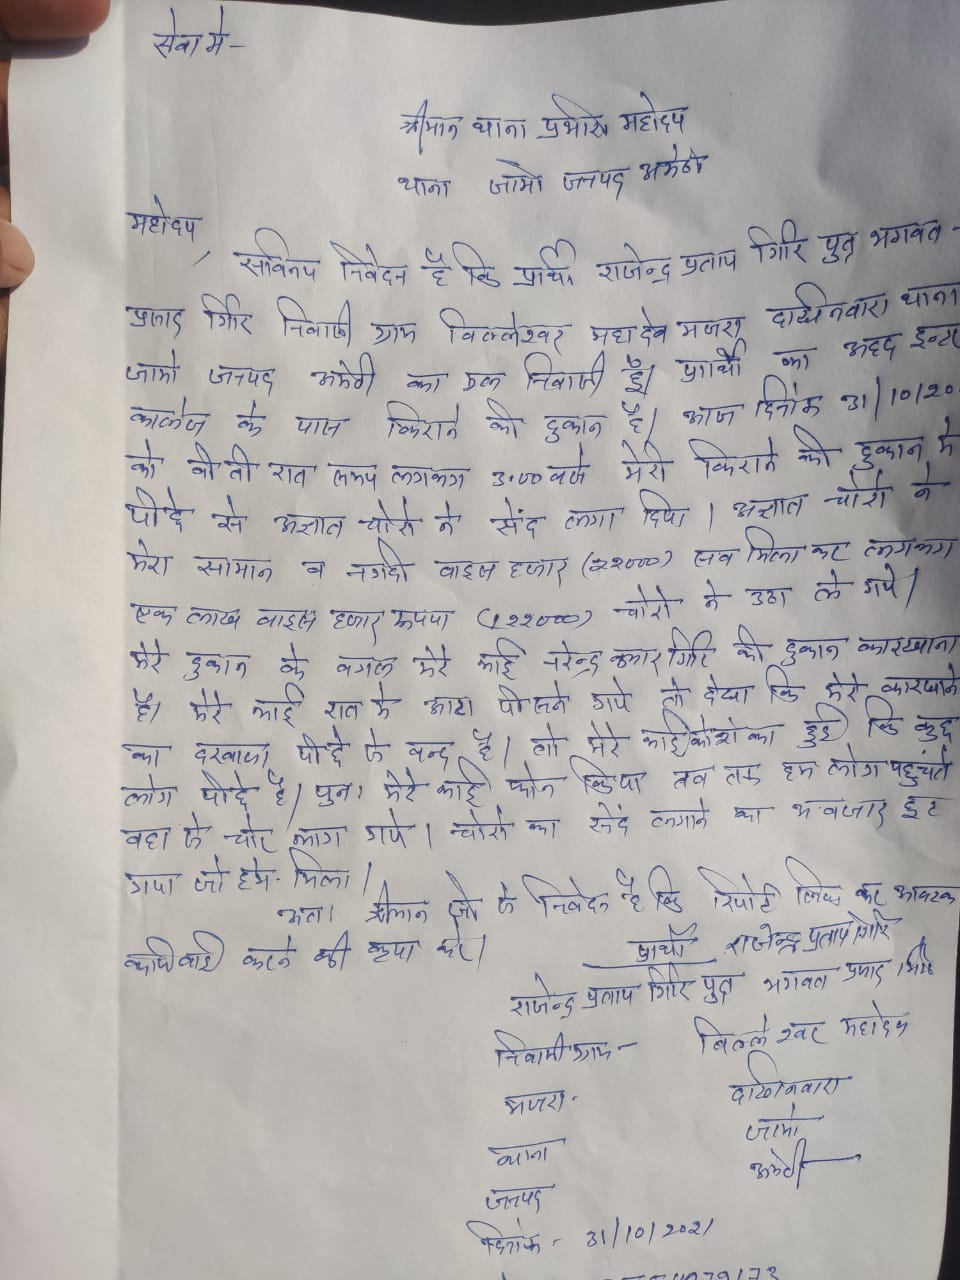 सेवा मे-
श्रीमान थाना प्रभारी महोदय
थाना जामो जनपद अमेठी
महोदय,
सविनय निवेदन है कि प्रार्थी राजेन्द्र प्रताप गिरि पुत्र भगवत-
प्रसाद गिरि निवासी ग्राम बिल्लेश्वर महादेव मजरा दखिनवारा थाना
जामो जनपद अमेठी का एक निवासी है। प्रार्थी का इन्टर
कालेज के पास किराने की दुकान है। आज दिनांक 31/10/20
को बीती रात समय लगभग 3.00 बजे मेरी किराने की दुकान मे
पीछे से अज्ञात चोरो ने सेंद लगा दिया। अज्ञात चोरो ने
मेरा सामान व नगदी बाइस हजार (22000) सब मिला कर लगभग
एक लाख बाइस हजार रूपया (122000) चोरो ने उठा ले गये।
मेरे दुकान के बगल मेरे भाई नरेन्द्र कुमार गिरि की दुकान कारखाना
है। मेरे भाई रात मे आटा पीसने गये तो देखा कि मेरे कारखाने
का दरवाजा पीछे से बन्द है। तो मेरे भाई को शंका हुई कि कुछ
लोग पीछे है। पुनः मेरे भाई फोन किया तब तक हम लोग पहुंचते
वहा से चोर भाग गये। चोरो का सेंद लगाने का अवजार छुट
गया जो हमे मिला।
अतः श्रीमान जी से निवेदन है कि रिपोर्ट लिख कर आवश्यक
कार्यवाही करने की कृपा करे।
प्रार्थी राजेन्द्र प्रताप गिरि
राजेन्द्र प्रताप गिरि पुत्र भगवत प्रसाद गिरि
निवासी ग्राम- बिल्लेश्वर महादेव
मजरा- दखिनवारा
थाना जामो
जनपद अमेठी
दिनांक- 31/10/2021